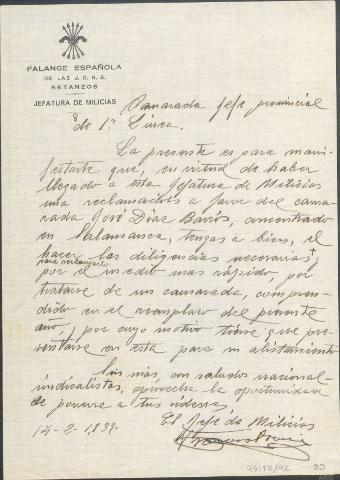 FALANGE ESPAÑOLA
DE LAS J. O. N. S.
BETANZOS
JEFATURA DE MILICIAS
Camarada Jefe provincial
de 1ª Línea.
La presente es para mani-
festarte que, en virtud de haber
llegado a esta Jefatura de Milicias
una reclamación a favor del cama-
rada José Díaz Barós, concentrado
en Salamanca, tengas a bien, el
hacer las diligencias necesarias,
para reclamarlo
por el medio mas rápido, por
tratarse de un camarada, compren-
dido en el reemplazo del presente
año, por cuyo motivo tiene que pre-
sentarse en esta para su alistamiento
Sin más, con saludos nacional-
sindicalistas, aprovecha la oportunidad
de ponerse a tus ordenes,
El Jefe de Milicias
14-2-1,937.
33